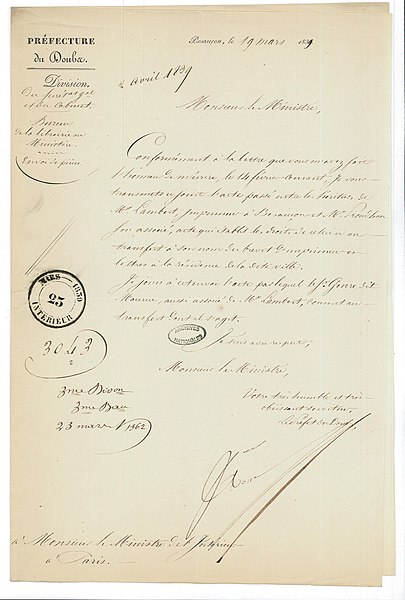 PRÉFECTURE
du Doubs.
Division
Du Secrét. gal
et du Cabinet.
Bureau
de la librairie au
Ministère
Envoi de pièce.
Besançon, le 19 mars 1839
2 avril 1839
Monsieur le Ministre,
Conformément à la lettre que vous m'avez fait
l'honneur de m'écrire, le 14 de courant, Je vous
transmets ci-joint l'acte passé entre les héritiers de
Mr. Lambert, imprimeur à Besançon et Mr. Proudhon
son associé, acte qui établit les droits de celui-ci au
transfert à son nom du brevet d'imprimeur en
lettres à la résidence de la dite ville.
Je joins à cet envoi l'acte par lequel le Sr.
Maurice, aussi associé de Mr. Lambert, consent au
transfert dont il s'agit.
Je suis avec respect,
Monsieur le Ministre,
Votre très humble et très
obéissant serviteur,
Le Préfet du Doubs,
ARCHIVES
NATIONALES
MARS 1839
23
INTÉRIEUR
3043
3me Divon
3me Bau
23 mars 1362
à Monsieur le Ministre de l'Intérieur
à Paris.